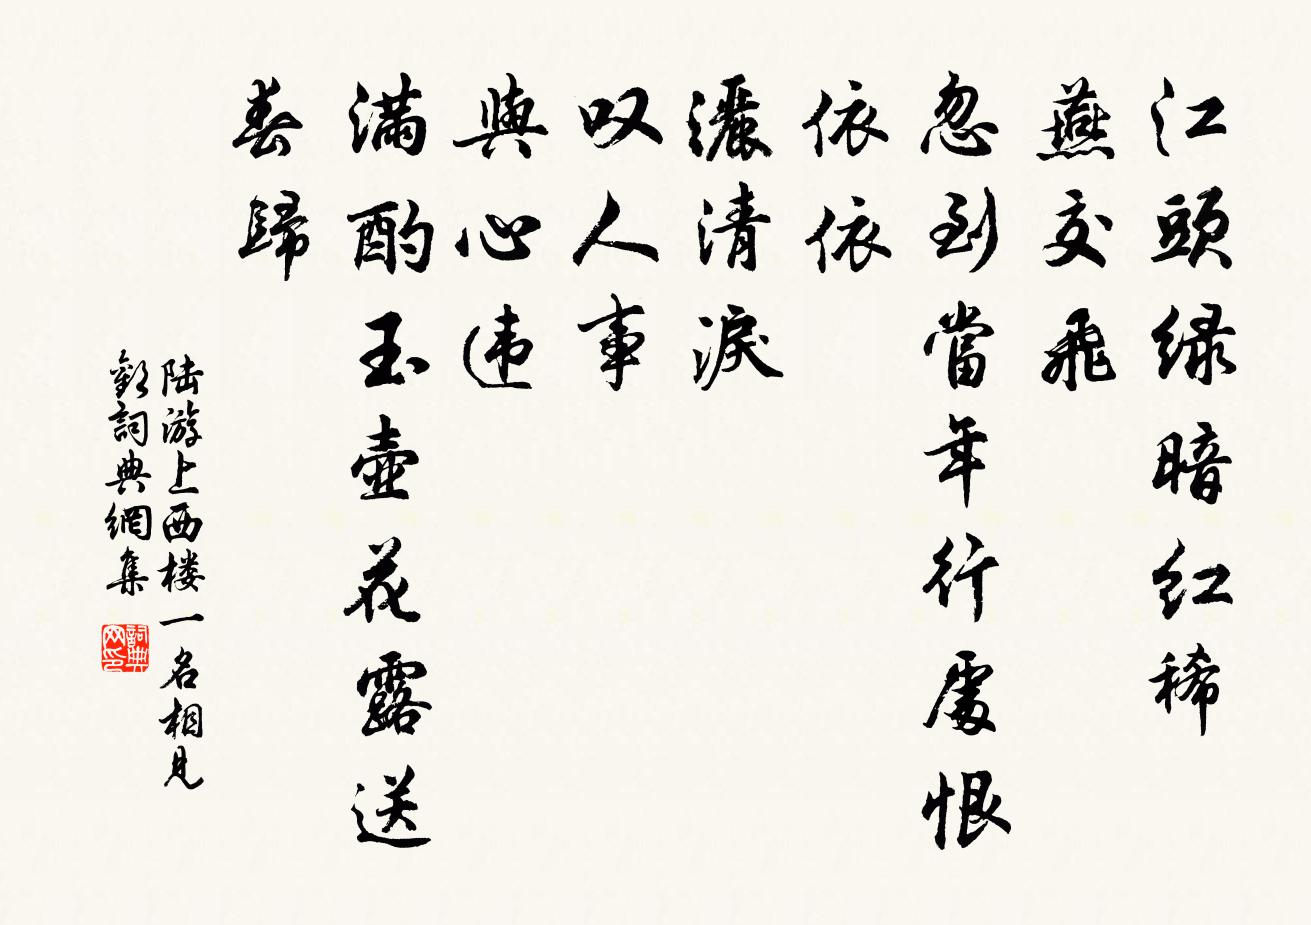 江頭绿暗红稀
燕交飛
忽到當年行處恨
依依
灑清淚
叹人事
與心违
满酌玉壷花露送
春歸
陆游上西楼一名相見
歡詞典網集
詞典
网印